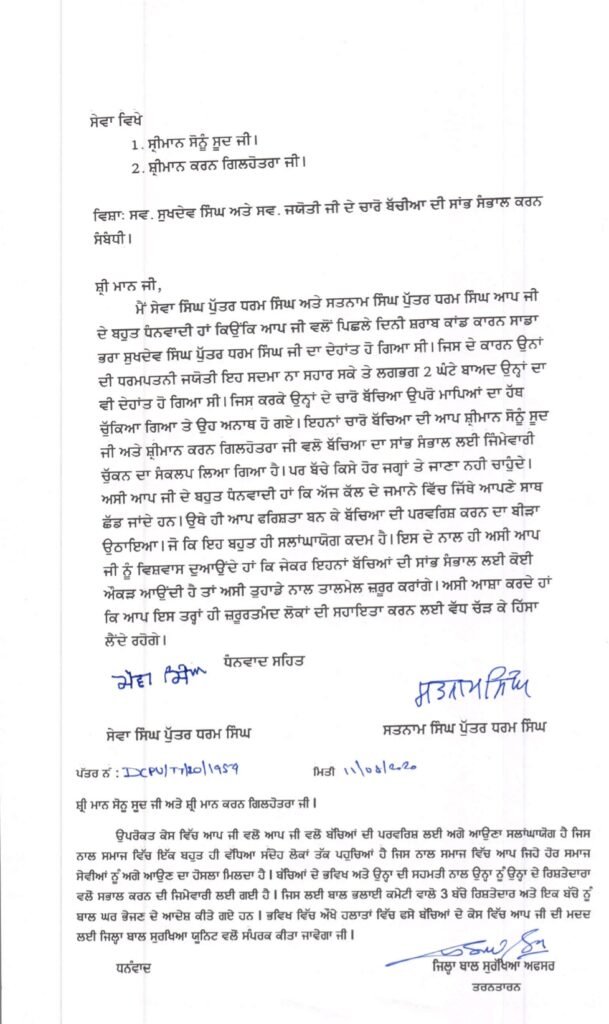 ਸੇਵਾ ਵਿਖੇ
1. ਸ਼੍ਰੀਮਾਨ ਸੋਨੂੰ ਸੂਦ ਜੀ।
2. ਸ਼੍ਰੀਮਾਨ ਕਰਨ ਗਿਲਹੋਤਰਾ ਜੀ।
ਵਿਸ਼ਾ: ਸਵ. ਸੁਖਦੇਵ ਸਿੰਘ ਅਤੇ ਸਵ. ਜਯੋਤੀ ਜੀ ਦੇ ਚਾਰੋ ਬੱਚੀਆ ਦੀ ਸਾਂਭ ਸੰਭਾਲ ਕਰਨ
ਸੰਬੰਧੀ।
ਸ਼੍ਰੀ ਮਾਨ ਜੀ,
ਮੈਂ ਸੇਵਾ ਸਿੰਘ ਪੁੱਤਰ ਧਰਮ ਸਿੰਘ ਅਤੇ ਸਤਨਾਮ ਸਿੰਘ ਪੁੱਤਰ ਧਰਮ ਸਿੰਘ ਆਪ ਜੀ
ਦੇ ਬਹੁਤ ਧੰਨਵਾਦੀ ਹਾਂ ਕਿਉਂਕਿ ਆਪ ਜੀ ਵਲੋਂ ਪਿਛਲੇ ਦਿਨੀ ਸ਼ਰਾਬ ਕਾਂਡ ਕਾਰਨ ਸਾਡਾ
ਭਰਾ ਸੁਖਦੇਵ ਸਿੰਘ ਪੁੱਤਰ ਧਰਮ ਸਿੰਘ ਜੀ ਦਾ ਦੇਹਾਂਤ ਹੋ ਗਿਆ ਸੀ। ਜਿਸ ਦੇ ਕਾਰਨ ਉਨਾਂ
ਦੀ ਧਰਮਪਤਨੀ ਜਯੋਤੀ ਇਹ ਸਦਮਾ ਨਾ ਸਹਾਰ ਸਕੇ ਤੇ ਲਗਭਗ 2 ਘੰਟੇ ਬਾਅਦ ਉਨ੍ਹਾਂ ਦਾ
ਵੀ ਦੇਹਾਂਤ ਹੋ ਗਿਆ ਸੀ। ਜਿਸ ਕਰਕੇ ਉਨ੍ਹਾਂ ਦੇ ਚਾਰੋ ਬੱਚਿਆ ਉਪਰੋ ਮਾਪਿਆਂ ਦਾ ਹੱਥ
ਚੁੱਕਿਆ ਗਿਆ ਤੇ ਉਹ ਅਨਾਥ ਹੋ ਗਏ। ਇਹਨਾਂ ਚਾਰੋ ਬੱਚਿਆ ਦੀ ਆਪ ਸ਼੍ਰੀਮਾਨ ਸੋਨੂੰ ਸੂਦ
ਜੀ ਅਤੇ ਸ਼੍ਰੀਮਾਨ ਕਰਨ ਗਿਲਹੋਤਰਾ ਜੀ ਵਲੋ ਬੱਚਿਆ ਦਾ ਸਾਂਭ ਸੰਭਾਲ ਲਈ ਜਿੰਮੇਵਾਰੀ
ਚੁੱਕਨ ਦਾ ਸੰਕਲਪ ਲਿਆ ਗਿਆ ਹੈ। ਪਰ ਬੱਚੇ ਕਿਸੇ ਹੋਰ ਜਗ੍ਹਾਂ ਤੇ ਜਾਣਾ ਨਹੀ ਚਾਹੁੰਦੇ।
ਅਸੀ ਆਪ ਜੀ ਦੇ ਬਹੁਤ ਧੰਨਵਾਦੀ ਹਾਂ ਕਿ ਅੱਜ ਕੱਲ ਦੇ ਜਮਾਨੇ ਵਿੱਚ ਜਿੱਥੇ ਆਪਣੇ ਸਾਥ
ਛੱਡ ਜਾਂਦੇ ਹਨ। ਉਥੇ ਹੀ ਆਪ ਫਰਿਸ਼ਤਾ ਬਨ ਕੇ ਬੱਚਿਆ ਦੀ ਪਰਵਰਿਸ਼ ਕਰਨ ਦਾ ਬੀੜਾ
ਉਠਾਇਆ। ਜੋ ਕਿ ਇਹ ਬਹੁਤ ਹੀ ਸਲਾਂਘਾਯੋਗ ਕਦਮ ਹੈ। ਇਸ ਦੇ ਨਾਲ ਹੀ ਅਸੀ ਆਪ
ਜੀ ਨੂੰ ਵਿਸ਼ਵਾਸ ਦੁਆਉਂਦੇ ਹਾਂ ਕਿ ਜੇਕਰ ਇਹਨਾਂ ਬੱਚਿਆਂ ਦੀ ਸਾਂਭ ਸੰਭਾਲ ਲਈ ਕੋਈ
ਔਕੜ ਆਉਂਦੀ ਹੈ ਤਾਂ ਅਸੀ ਤੁਹਾਡੇ ਨਾਲ ਤਾਲਮੇਲ ਜ਼ਰੂਰ ਕਰਾਂਗੇ। ਅਸੀ ਆਸ਼ਾ ਕਰਦੇ ਹਾਂ
ਕਿ ਆਪ ਇਸ ਤਰ੍ਹਾਂ ਹੀ ਜ਼ਰੂਰਤਮੰਦ ਲੋਕਾਂ ਦੀ ਸਹਾਇਤਾ ਕਰਨ ਲਈ ਵੱਧ ਚੱੜ ਕੇ ਹਿੱਸਾ
ਲੈਂਦੇ ਰਹੋਗੇ।
ਧੰਨਵਾਦ ਸਹਿਤ
ਸੇਵਾ ਸਿੰਘ
ਸਤਨਾਮ ਸਿੰਘ
ਸੇਵਾ ਸਿੰਘ ਪੁੱਤਰ ਧਰਮ ਸਿੰਘ
ਸਤਨਾਮ ਸਿੰਘ ਪੁੱਤਰ ਧਰਮ ਸਿੰਘ
ਪੱਤਰ ਨੰ : DCPU/TT/20/1959 ਮਿਤੀ 11/08/2020
ਸ਼੍ਰੀ ਮਾਨ ਸੋਨੂ ਸੂਦ ਜੀ ਅਤੇ ਸ਼੍ਰੀ ਮਾਨ ਕਰਨ ਗਿਲਹੋਤਰਾ ਜੀ।
ਉਪਰੋਕਤ ਕੇਸ ਵਿੱਚ ਆਪ ਜੀ ਵਲੋ ਆਪ ਜੀ ਵਲੋ ਬੱਚਿਆਂ ਦੀ ਪਰਵਰਿਸ਼ ਲਈ ਅਗੇ ਆਉਣਾ ਸਲਾਂਘਾਯੋਗ ਹੈ ਜਿਸ
ਨਾਲ ਸਮਾਜ ਵਿੱਚ ਇੱਕ ਬਹੁਤ ਹੀ ਵੱਧਿਆ ਸੰਦੇਹ ਲੋਕਾਂ ਤੱਕ ਪਹੁਚਿਆ ਹੈ ਜਿਸ ਨਾਲ ਸਮਾਜ ਵਿੱਚ ਆਪ ਜਿਹੇ ਹੋਰ ਸਮਾਜ
ਸੇਵੀਆਂ ਨੂੰ ਅਗੇ ਆਉਣ ਦਾ ਹੋਸਲਾ ਮਿਲਦਾ ਹੈ। ਬੱਚਿਆਂ ਦੇ ਭਵਿਖ ਅਤੇ ਉਨ੍ਹਾ ਦੀ ਸਹਮਤੀ ਨਾਲ ਉਨ੍ਹਾ ਨੂੰ ਉਨ੍ਹਾ ਦੇ ਰਿਸ਼ਤੇਦਾਰਾ
ਵਲੋ ਸਭਾਲ ਕਰਨ ਦੀ ਜਿਮੇਵਾਰੀ ਲਈ ਗਈ ਹੈ। ਜਿਸ ਲਈ ਬਾਲ ਭਲਾਈ ਕਮੇਟੀ ਵਾਲੇ 3 ਬੱਚੇ ਰਿਸ਼ਤੇਦਾਰ ਅਤੇ ਇਕ ਬੱਚੇ ਨੂੰ
ਬਾਲ ਘਰ ਭੇਜਣ ਦੇ ਆਦੇਸ਼ ਕੀਤੇ ਗਏ ਹਨ। ਭਵਿਖ ਵਿੱਚ ਔਖੇ ਹਲਾਤਾਂ ਵਿੱਚ ਫਸੇ ਬੱਚਿਆਂ ਦੇ ਕੇਸ ਵਿੱਚ ਆਪ ਜੀ ਦੀ ਮਦਦ
ਲਈ ਜਿਲ੍ਹਾ ਬਾਲ ਸੁਰਖਿਆ ਯੂਨਿਟ ਵਲੋ ਸੰਪਰਕ ਕੀਤਾ ਜਾਵੇਗਾ ਜੀ।
ਧਨੰਵਾਦ
ਜਿਲ੍ਹਾ ਬਾਲ ਸੁਰੱਖਿਆ ਅਫਸਰ
ਤਰਨਤਾਰਨ